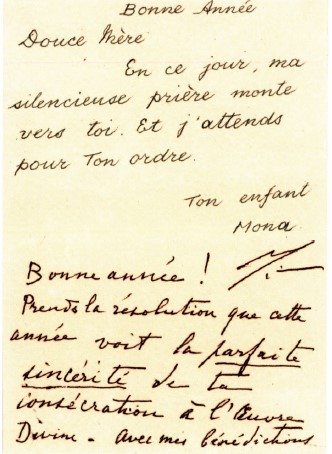 Bonne Année
Douce Mère
En ce jour, ma
silencieuse prière monte
vers toi. Et j'attends
pour Ton ordre.
Ton enfant
Mona
Bonne année !
Prends la résolution que cette
année voit la parfaite
sincérité de ta
consécration à l'Œuvre
Divine - avec mes bénédictions